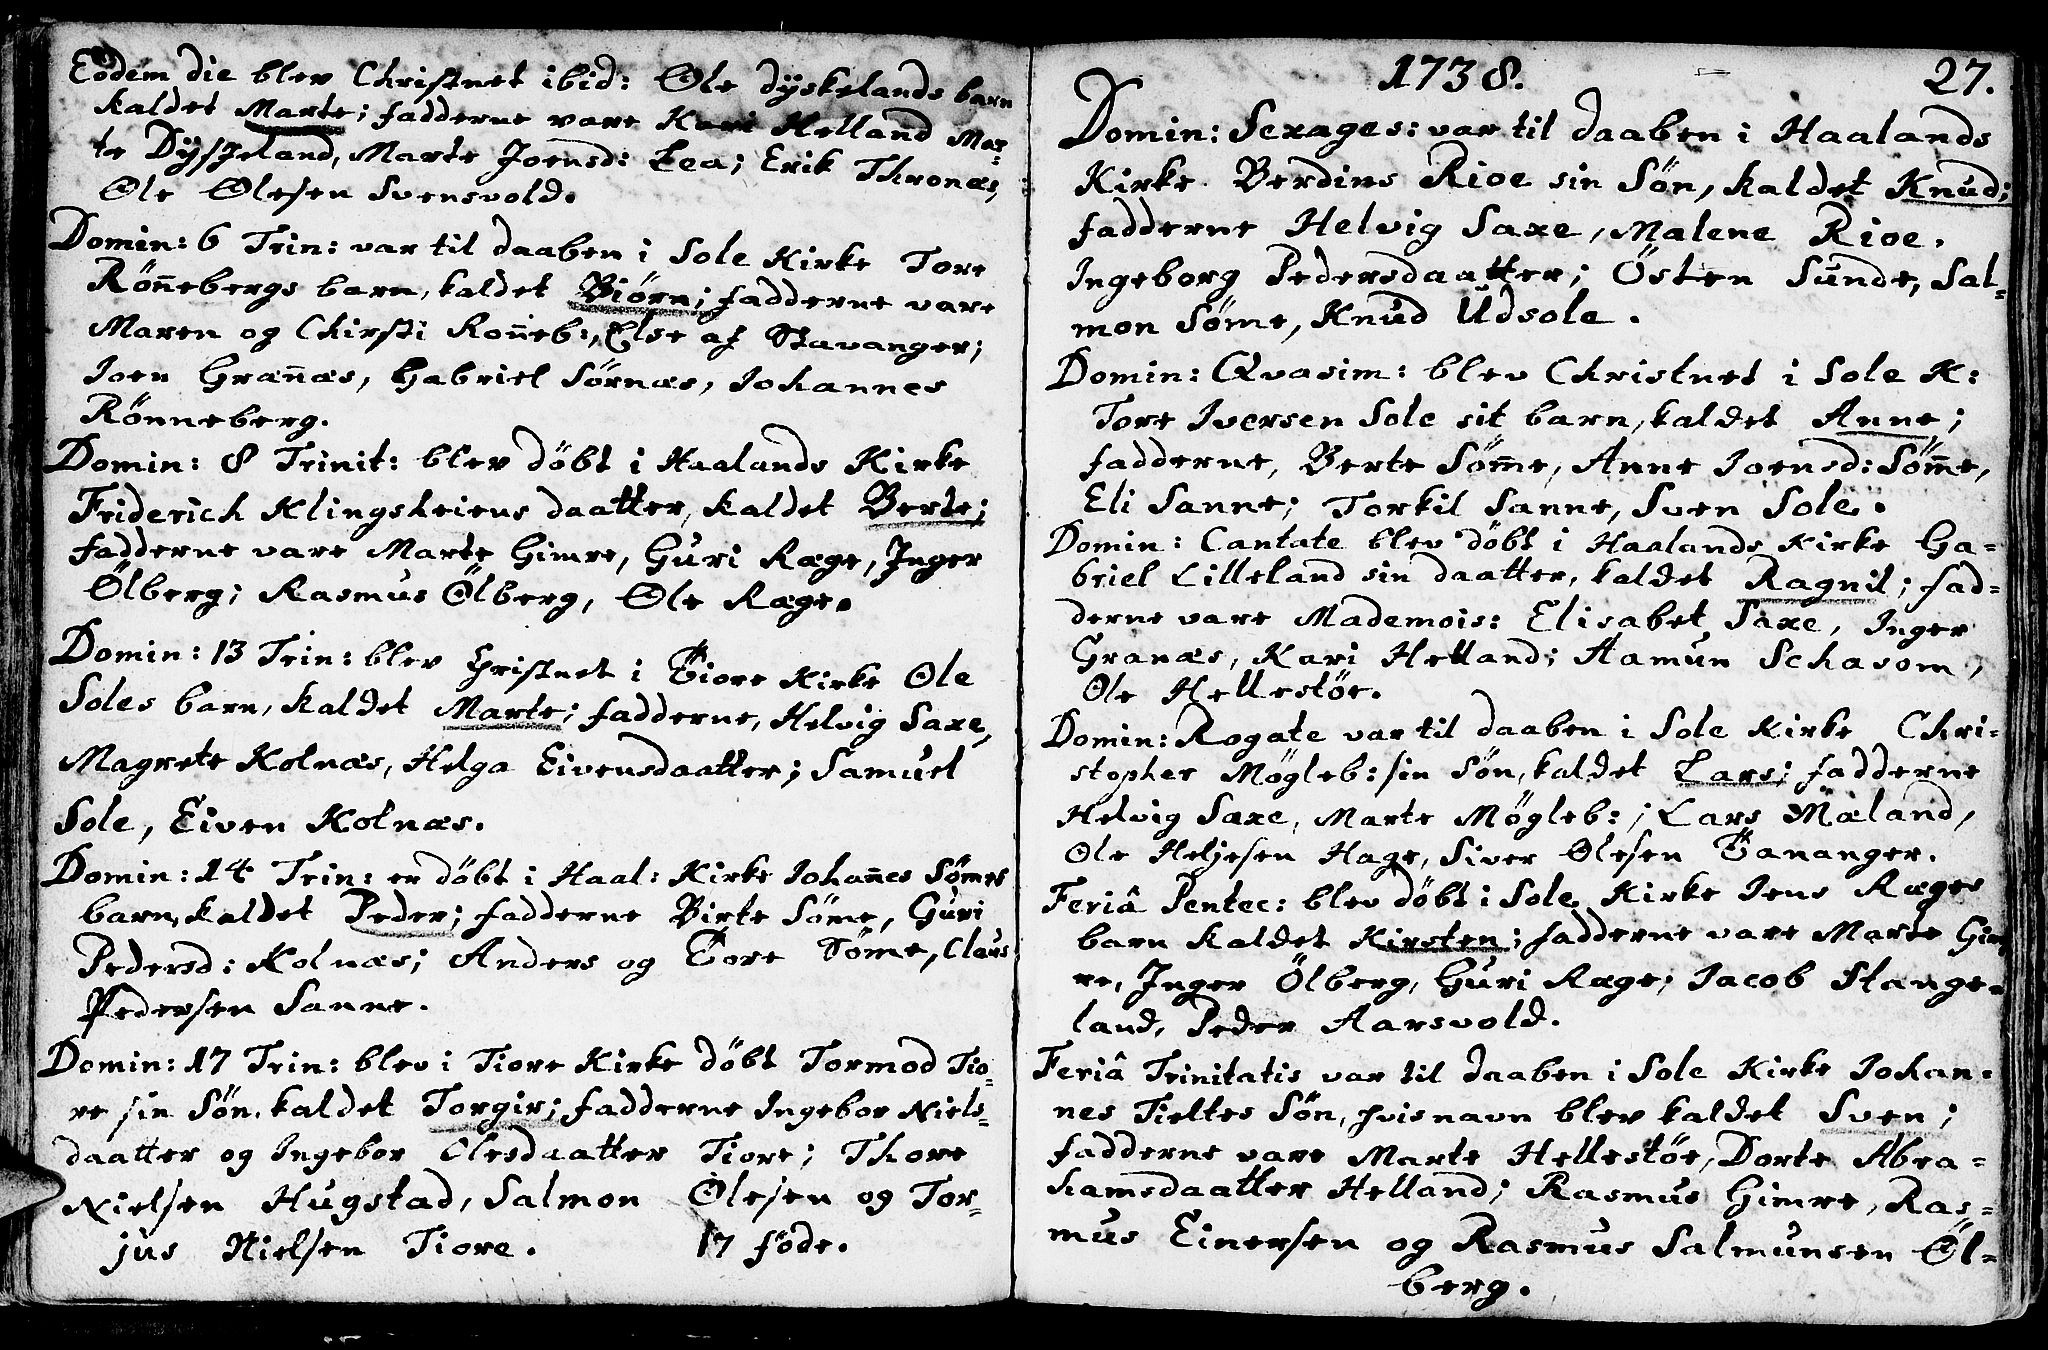 Eodem die blev Christnet ibid: Ole dyskelands barn
kaldet Marte; fadderne vare Kari Helland Mar=
te Dysjeland, Marte Joensd: Lea; Erik Thronæs,
Ole Olesen Svensvold.
Domin: 6 Trin: var til daaben i Sole Kirke Tore
Rönnebergs barn, kaldet Biörn; fadderne vare
Maren og Chirsti Ronneb:, Else af Stavanger;
Joen Grannæs, Gabriel Sörnæs, Johannes
Rönneberg.
Domin: 8 Trinit: blev döbt i Haalands Kirke
Friderich Klingsheiens daatter, kaldet Berte;
fadderne vare Marte Gimre, Guri Ræge, Inger
Ölberg; Rasmus Ölberg, Ole Ræge.
Domin: 13 Trin: blev Christnet i Tiore Kirke Ole
Soles barn, kaldet Marte; fadderne, Helvig Saxe,
Magrete Kolnæs, Helga Eivensdaatter; Samuel
Sole, Eiven Kolnæs.
Domin: 14 Trin: er döbt i Haal: Kirke Johannes Sömes
barn, kaldet Peder; fadderne Birte Söme, Guri
Pedersd: Kolnæs; Anders og Tore Söme, Claus
Pedersen Sanne.
Domin: 17 Trin: blev i Tiore Kirke döbt Tormod Tio=
re sin Sön, kaldet Torgir; fadderne Ingebor Niels=
daatter og Ingebor Olesdaatter Tiore; Thore
Nielsen Hugstad, Salmon Olesen og Tor=
jus Nielsen Tiore. 17 föde.
1738. 27.
Domin: Sexages: var til daaben i Haalands
Kirke Berdins Rioe sin Sön, kaldet Knud;
fadderne Helvig Saxe, Malene Rioe,
Ingeborg Pedersdaatter; Östen Sunde, Sal=
mon Söme, Knud Udsole.
Domin: Qvasim: blev Christnet i Sole K:
Tore Iversen Sole sit barn, kaldet Anne;
fadderne, Berte Sömme, Anne Joensd: Sömme,
Eli Sanne; Torkil Sanne, Sven Sole.
Domin: Cantate blev döbt i Haalands Kirke Ga=
briel Lilleland sin daatter, kaldet Ragnil; fad=
derne vare Mademois: Elisabet Saxe, Inger
Granæs, Kari Helland; Aamun Schasom,
Ole Hellestöe.
Domin: Rogate var til daaben i Sole Kirke Chri=
stopher Mögleb: sin Sön, kaldet Lars; fadderne
Helvig Saxe, Marte Mögleb:; Lars Mæland,
Ole Heljesen Hage, Siver Olesen Tananger.
Feriâ Pentec: blev döbt i Sole Kirke Jens Ræges
barn kaldet Kirsten; fadderne vare Marte Gim
re, Inger Ölberg, Guri Ræge; Jacob Stange=
land, Peder Aarsvold.
Feriâ Trinitatis var til daaben i Sole Kirke Johan=
nes Tieltes Sön, hvis navn blev kaldet Sven;
fadderne vare Marte Hellestöe, Dorte Abra=
hamsdaatter Helland; Rasmus Gimre, Ras=
mus Einersen og Rasmus Salmunsen Öl=
berg.